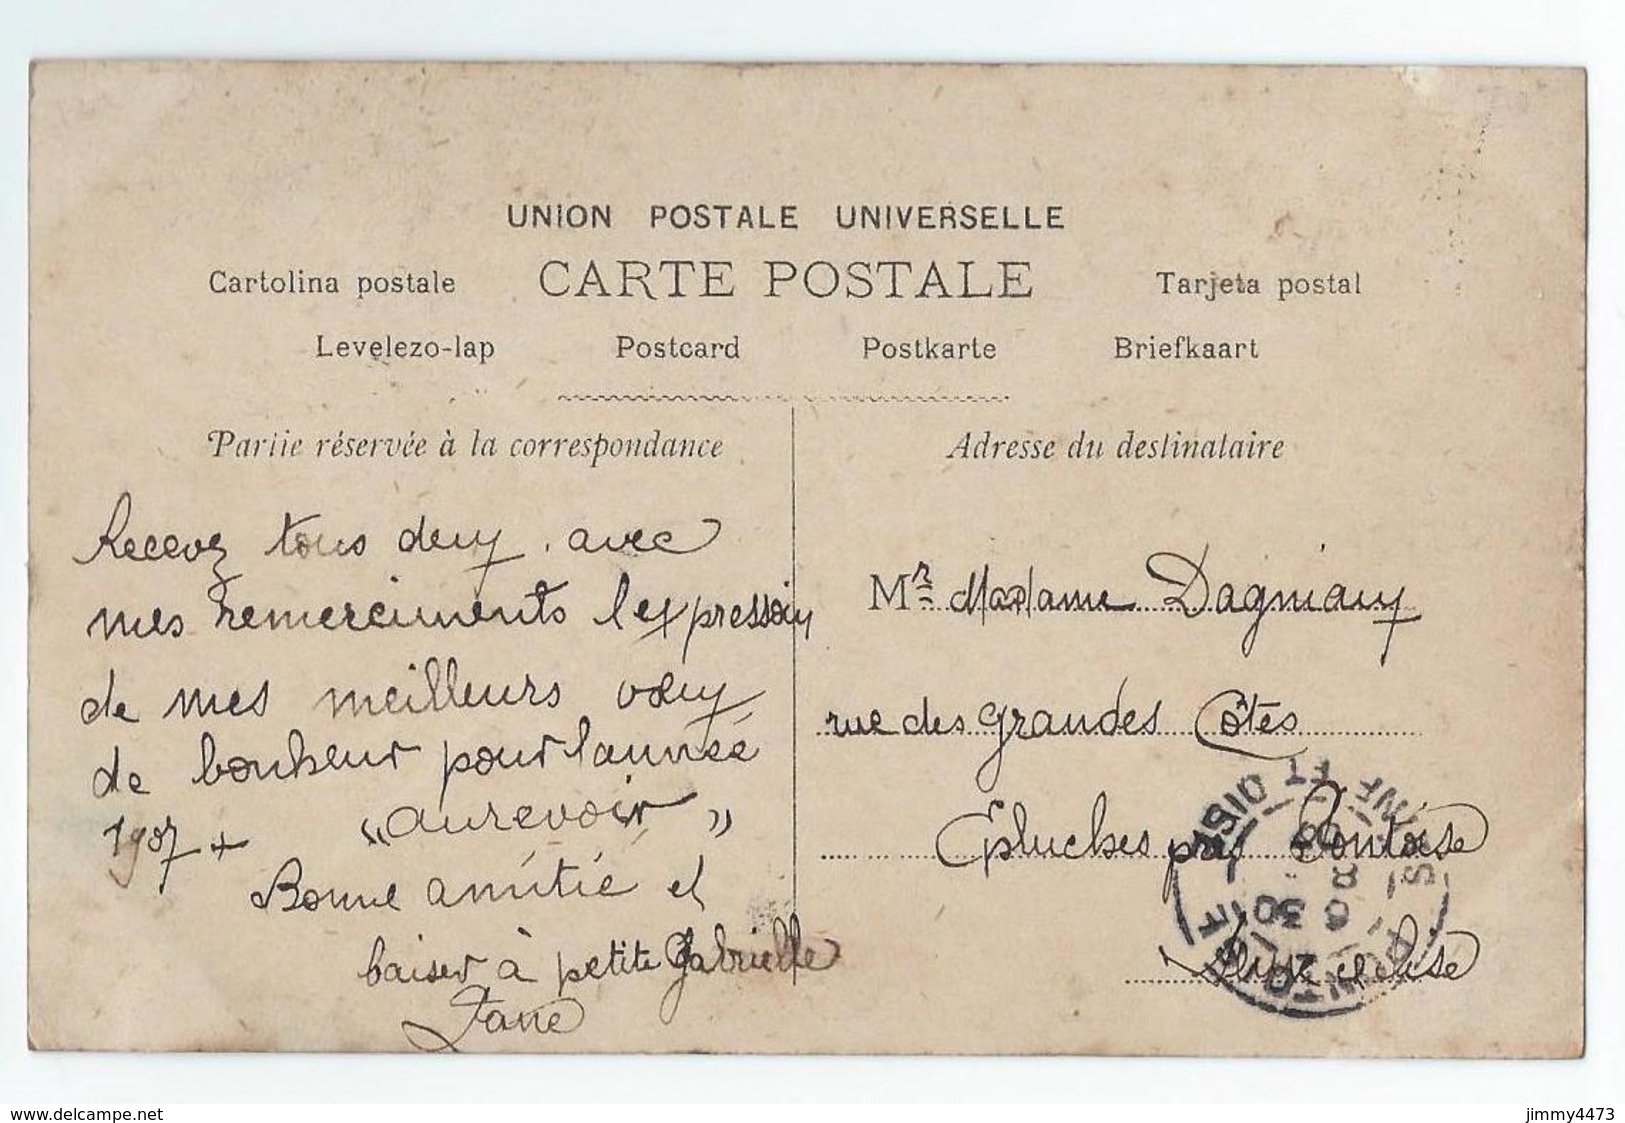 UNION POSTALE UNIVERSELLE
Cartolina postale CARTE POSTALE Tarjeta postal
Levelezo-lap Postcard Postkarte Briefkaart
Partie réservée à la correspondance
Adresse du destinataire
Recevez tous deux avec
mes remerciments l'expression
de mes meilleurs vœux
de bonheur pour l'année
1907 + "aurevoir"
Bonne amitié et
baiser à petite Gabrielle
Jane
Mr Madame Dagniaux
rue des grandes Côtes
Epluches près Pontoise
Seine et Oise
PONTOISE
SEINE ET OISE
6 30
www.delcampe.net
jimmy4473